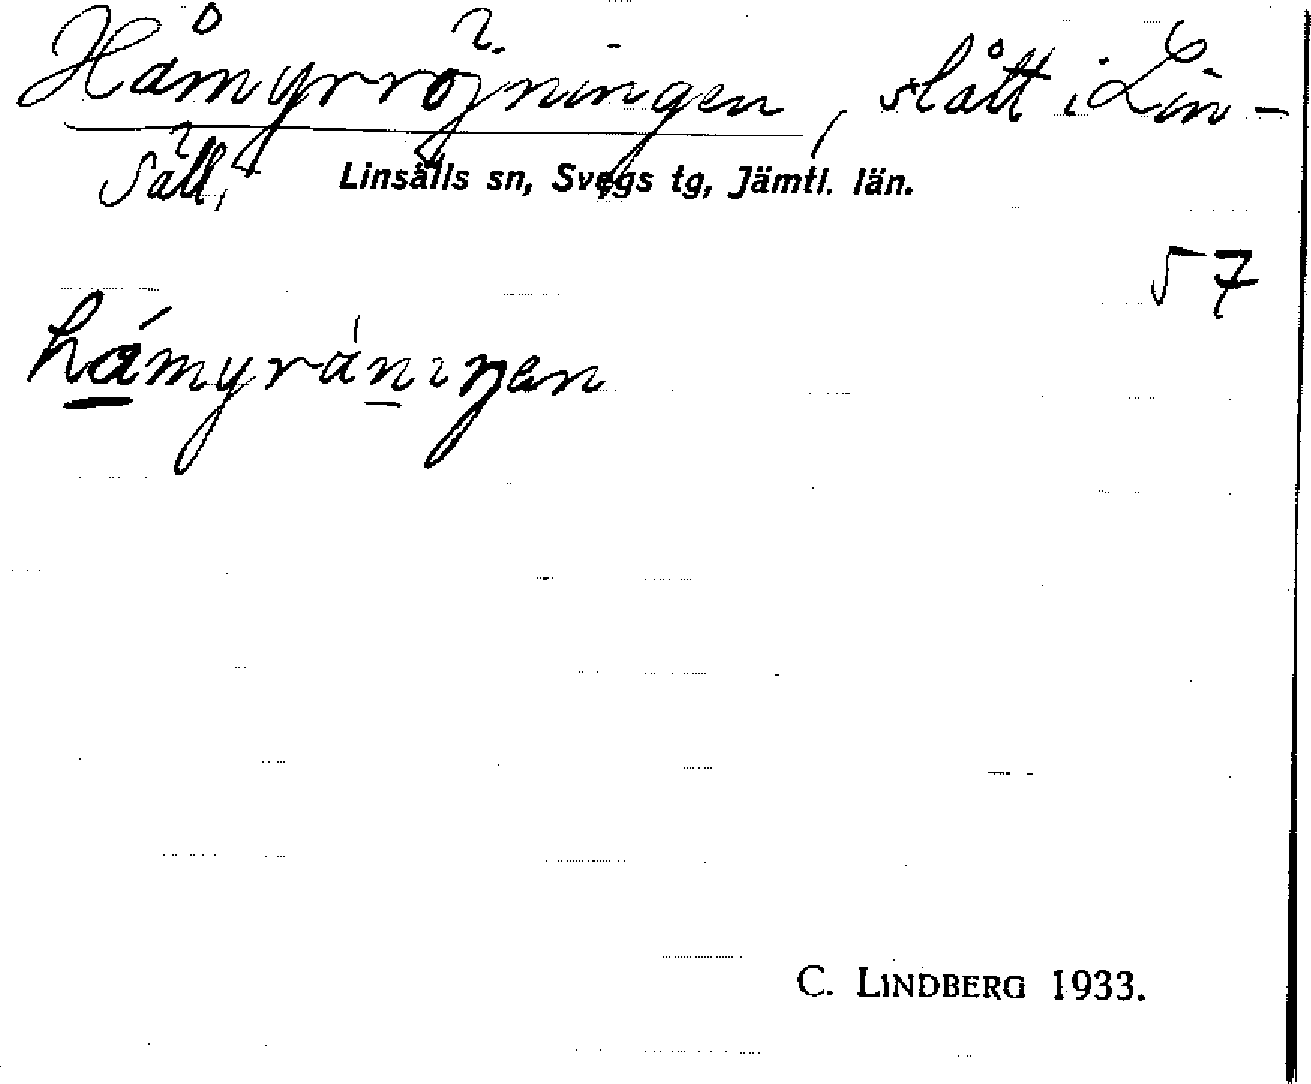 Håmyrröjningen, slått i Lin-
säll,
Linsälls sn, Svegs tg, Jämtl. län.
57
hámyránıŋen
C. LINDBERG 1933.